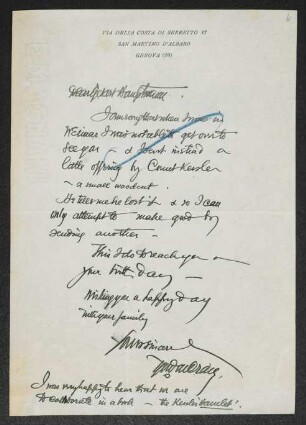 VIA DELLA COSTA DI SERRETTO 17
SAN MARTINO D'ALBARO
GENOVA (33)
Dear Gerhart Hauptmann.
I am sorry that when I was in
Weimar I was not able to get over to
see you — & I sent instead a
little offering by Count Kessler
— a small woodcut.
He tells me he lost it & so I can
only attempt to make good by
sending another —
This I do to reach you on
your birthday —
Wishing you a happy day
with your family
Gordon Craig
I was very happy to hear that we are
to collaborate in a book — the Kessler Hamlet!